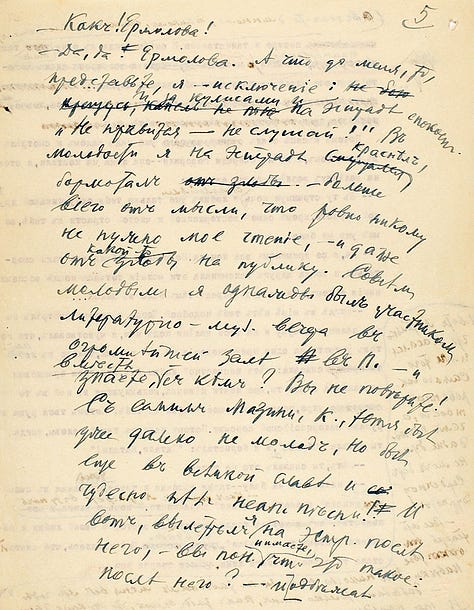 5
— Какъ! Ермолова!
— Да, да, Ермолова. А что до меня, то,
представьте, я — исключение: не
за кулисами и на эстраде спокоенъ.
"Не нравится — не слушай!" Въ
молодости я на эстраде краснелъ,
бормоталъ отъ злобы – больше
всего отъ мысли, что ровно никому
не нужно мое чтение, – и даже
отъ какой-то злобы на публику. Совсемъ
молодымъ я однажды былъ участникомъ
литературно-муз. вечера въ
огромнейшей зале въ П. — и
знаете, вместе съ кемъ? Вы не поверите!
Съ самимъ Мазини, к., хотя былъ
уже далеко не молодъ, но былъ
еще въ великой славе и
чудесно пелъ неап. песни! И
вотъ, вылетелъ я на эстр. после
него, – вы понимаете, что это такое:
после него? — подбежалъ